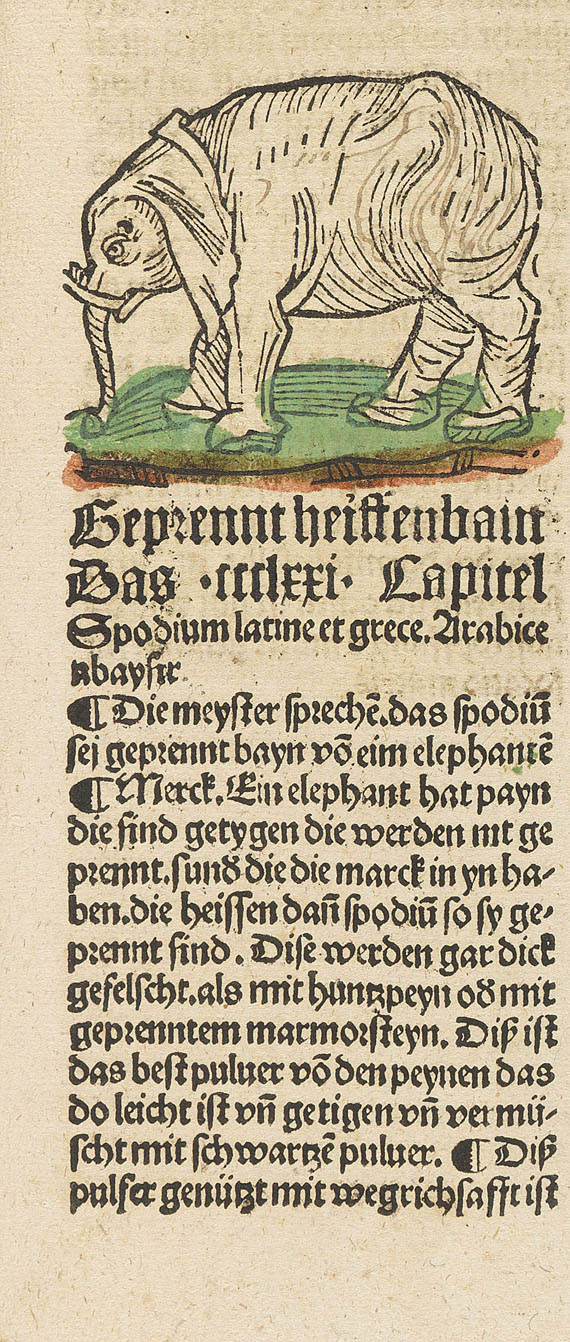 Geprennt helffenbain
Das ·ccclxxi· Capitel
Spodium latine et grece. Arabice
abaysir
¶ Die meyster sprechē. das spodiū
sei geprennt bayn vō eim elephantē
¶ Merck. Ein elephant hat payn
die sind getygen die werden nit ge
prennt. sund̄ die die marck in yn ha⸗
ben. die heissen dañ spodiū so sy ge⸗
prennt sind. Dise werden gar dick
gefelscht. als mit huntzpeyn od̄ mit
geprenntem marmorsteyn. Diß ist
das best puluer vō den peynen das
do leicht ist vñ getigen vñ vermü⸗
scht mit schwartzē puluer. ¶ Diß
pulfer genützt mit wegrichsafft ist